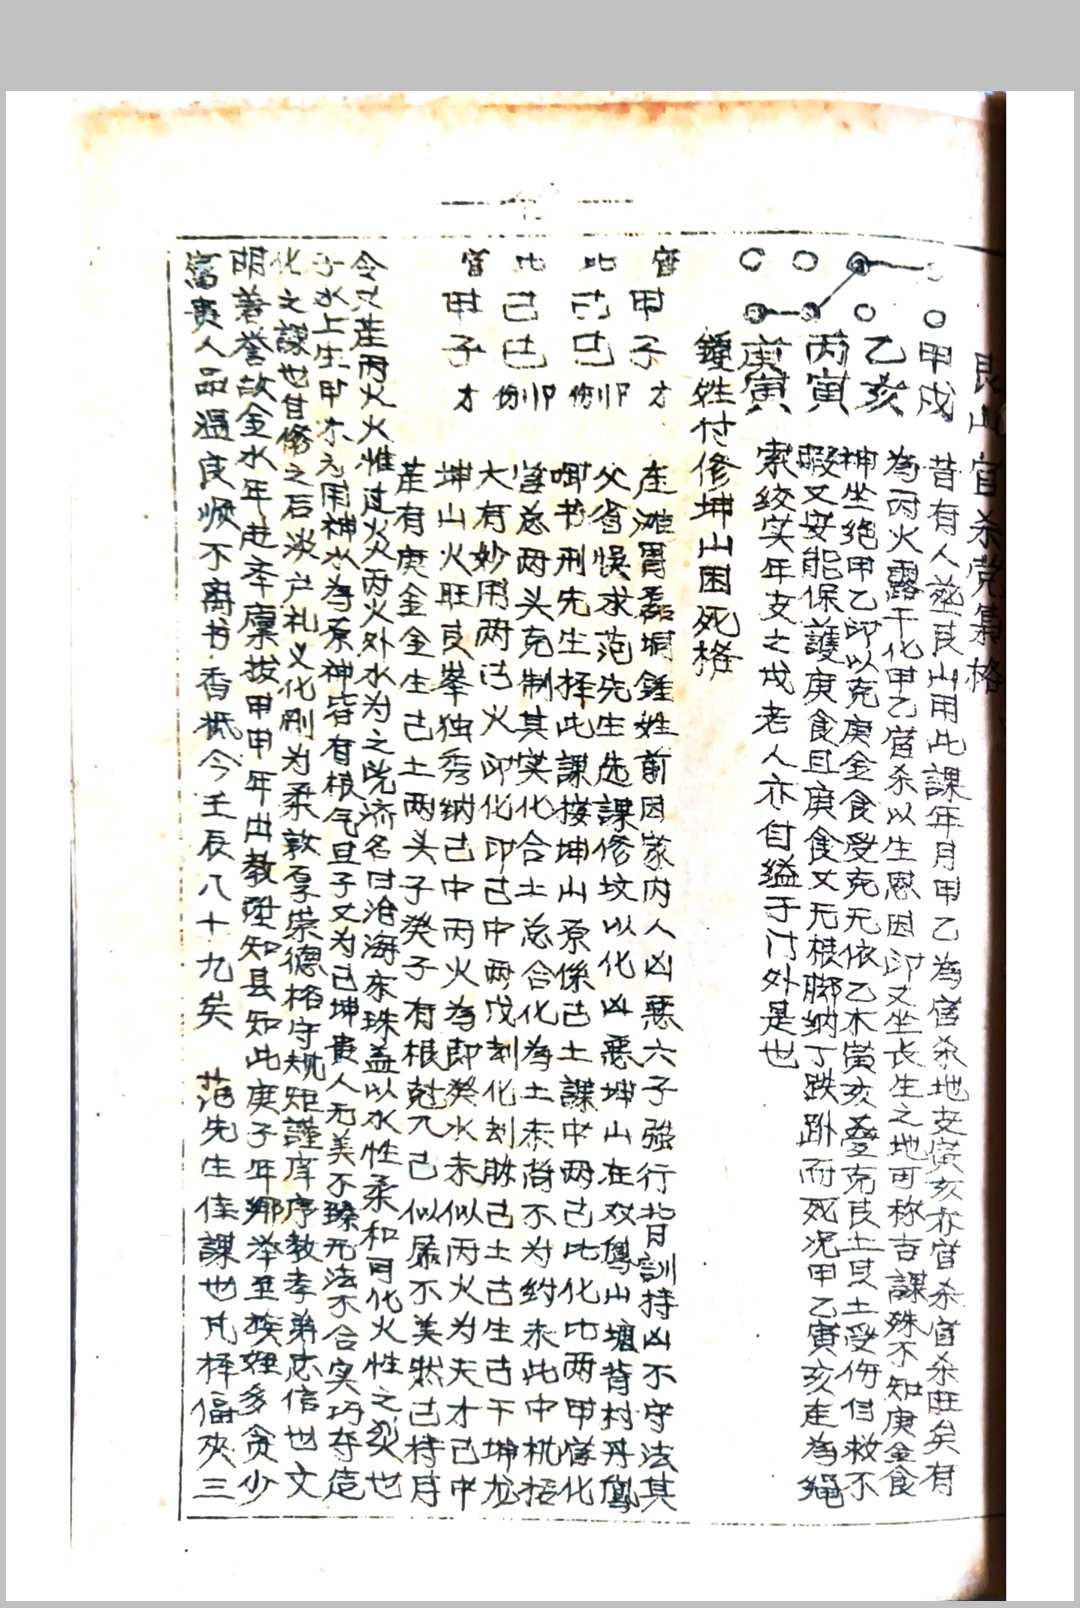 艮山官杀党梟格
甲戌
乙亥
丙寅
庚寅
昔有人葬艮山用此課年月甲乙為官杀地支寅亥亦官杀官杀旺矣有
為丙火露干化甲乙官杀以生恩因印又坐长生之地可称吉課殊不知庚金食
神坐绝甲乙印以克庚金食受克无依乙木寅亥叠克艮土艮土受伤自救不
暇又安能保護庚食且庚食又无根脚纳丁跌跡而死况甲乙寅亥走為繩
索绞实年支之戌老人亦自縊于门外是也
鍾姓付修坤山困死格
官甲子才
比己巳印
比己巳印
官甲子才
在滩胃磊垌鍾姓前因家内人凶惡六子強行背訓持凶不守法其
父省悞求范先生选課修坟以化凶惡坤山在双鳳山壇背村丹鳳
啣书刑先生择此課接坤山原係己土課中两己比化比两甲官化
官总两头克制其实化合土总合化為土未尚不为约束此中机括
大有妙用两己火印化印己中两戊刦化刦助己土吉生吉干坤尨
坤山火旺艮峯独秀纳己中丙火為即癸水未似丙火为夫才己中
茊有庚金金生己土两头子癸子有根尅兀己似属不美然己持月
令又茊丙火火惟过火火丙火外水为之既济名曰沧海东珠益以水性柔和可化火性之烈也
子水上生甲木为用神水為原神皆有根气且子又为己坤贵人无美不臻无法不合实巧夺造
化之課也甘修之后淡产礼义化刚为柔敦厚崇德格守规矩謹庠序教孝弟忠信也文
明著誉故金水年赴本廩按甲申年出教諭知县知此庚子年鄉举至族姪多贪少
富贵人品温良顺不离书香祗今壬辰八十九矣　范先生佳課也凡择福夾三